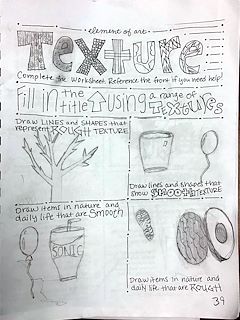 element of art
TEXTURE
Complete the Worksheet. Reference the front if you need help!
Fill in the title using a range of TEXTURES
Draw LINES and SHAPES that
represent ROUGH TEXTURE
Draw lines and shapes that
show SMOOTH TEXTURE
Draw items in nature and
daily life that are SMOOTH
SONIC
Draw items in nature and
daily life that are ROUGH
39